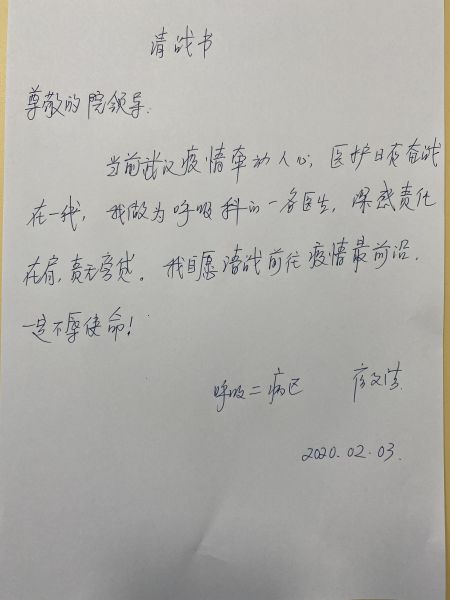 请战书
尊敬的院领导.
当前武汉疫情牵动人心, 医护日夜奋战
在一线, 我做为呼吸科的一名医生, 深感责任
在肩, 责无旁贷。我自愿请战前往疫情最前沿.
定不辱使命!
呼吸二病区
2020.02.03.